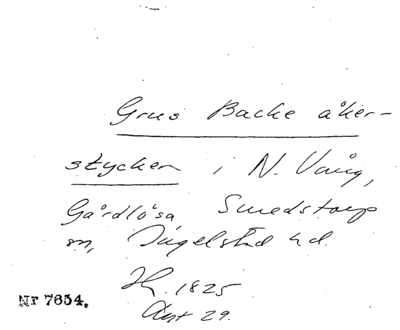 Grus Backe åker-
stycken i N. Vång,
Gårdlösa, Smedstorp
sn, Ingelstad hd.
1825
Akt 29.
Nr 7654.